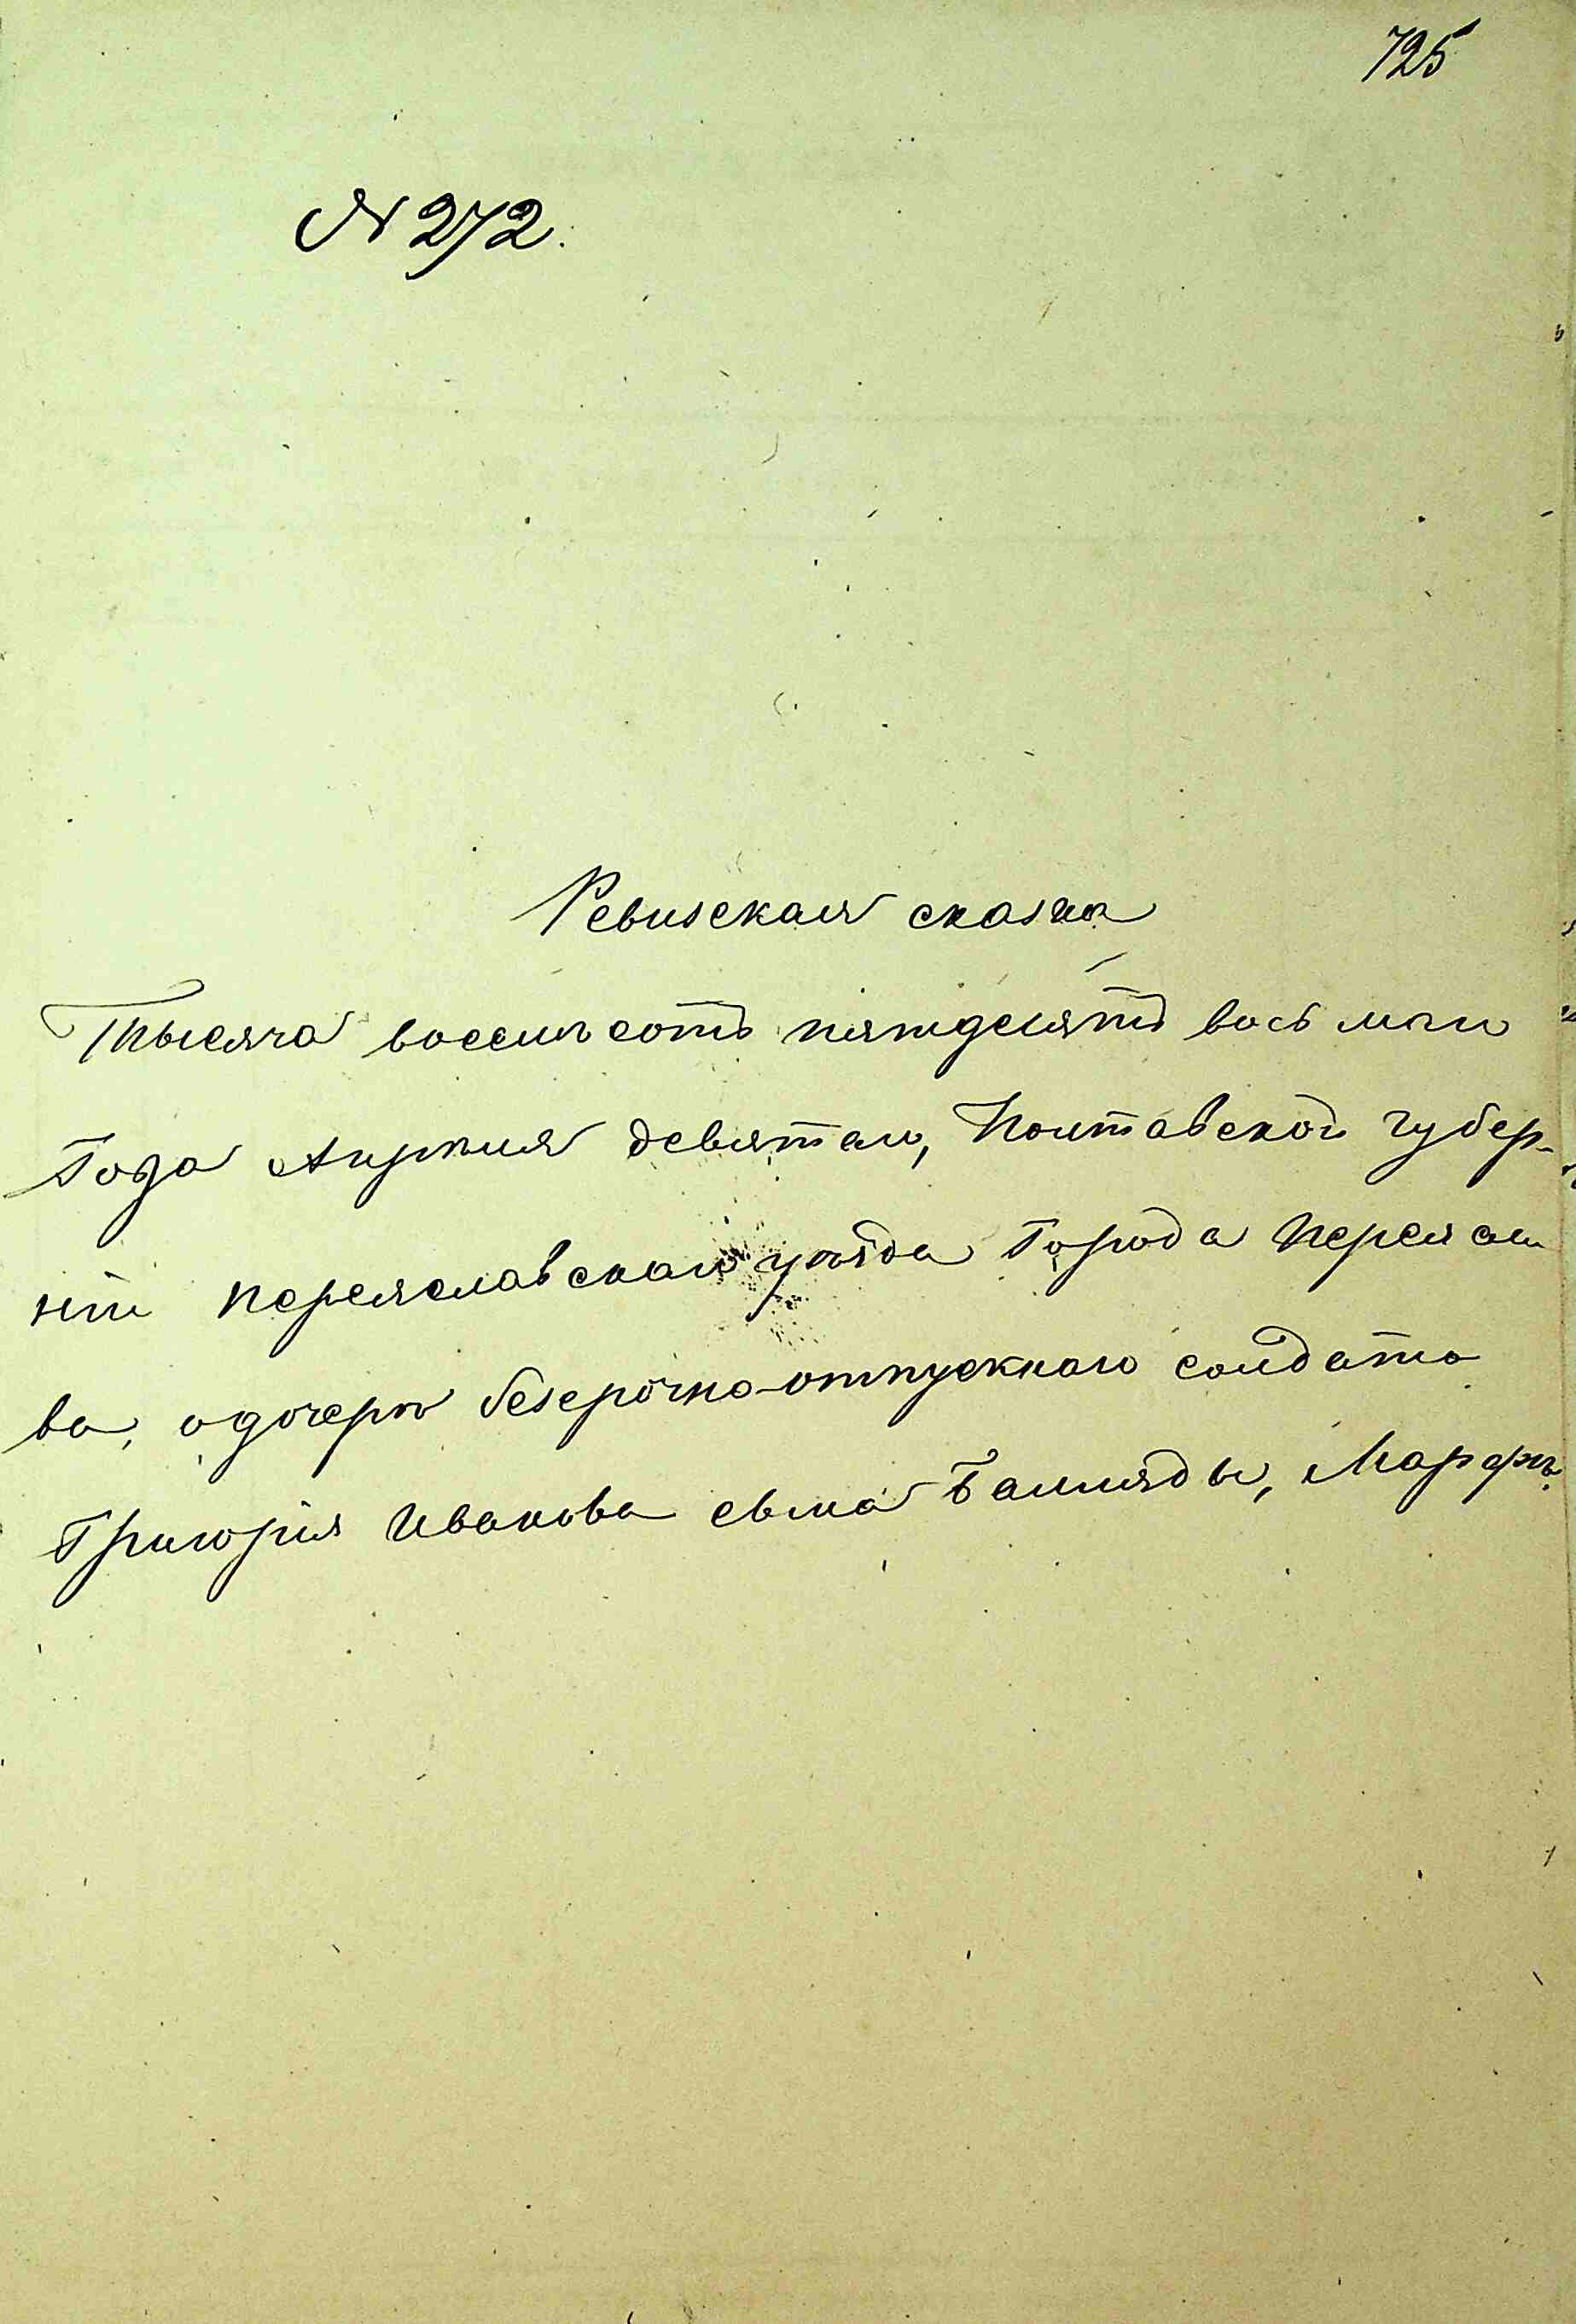 725
№ 272.
Ревизская сказка
Тысяча восемьсотъ пятдесятъ восьмаго
Года Апрѣля девятаго, Полтавской губер-
ніи Переяславскаго уѣзда Города Переясла
ва, о дочерѣ безсрочно-отпускнаго солдата
Григорія Иванова сына Марфѣ.